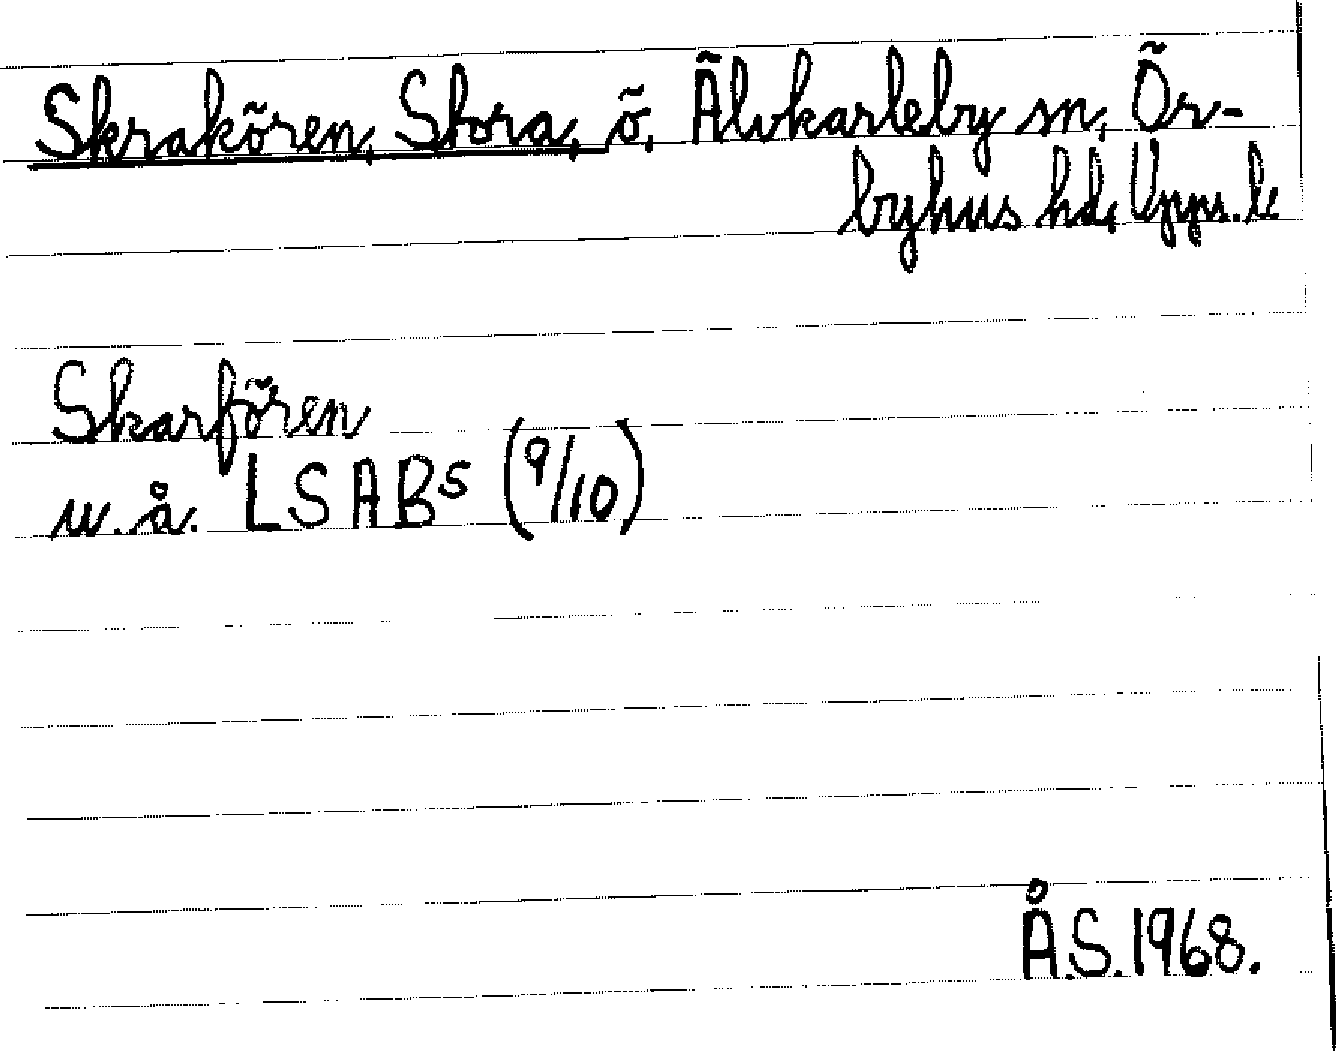 Skrakören, Stora, ö, Älvkarleby sn, Ör-
byhus hd, Upps. l.
Skarfören
u.å. LSA B5 (9/10)
Å.S. 1968.